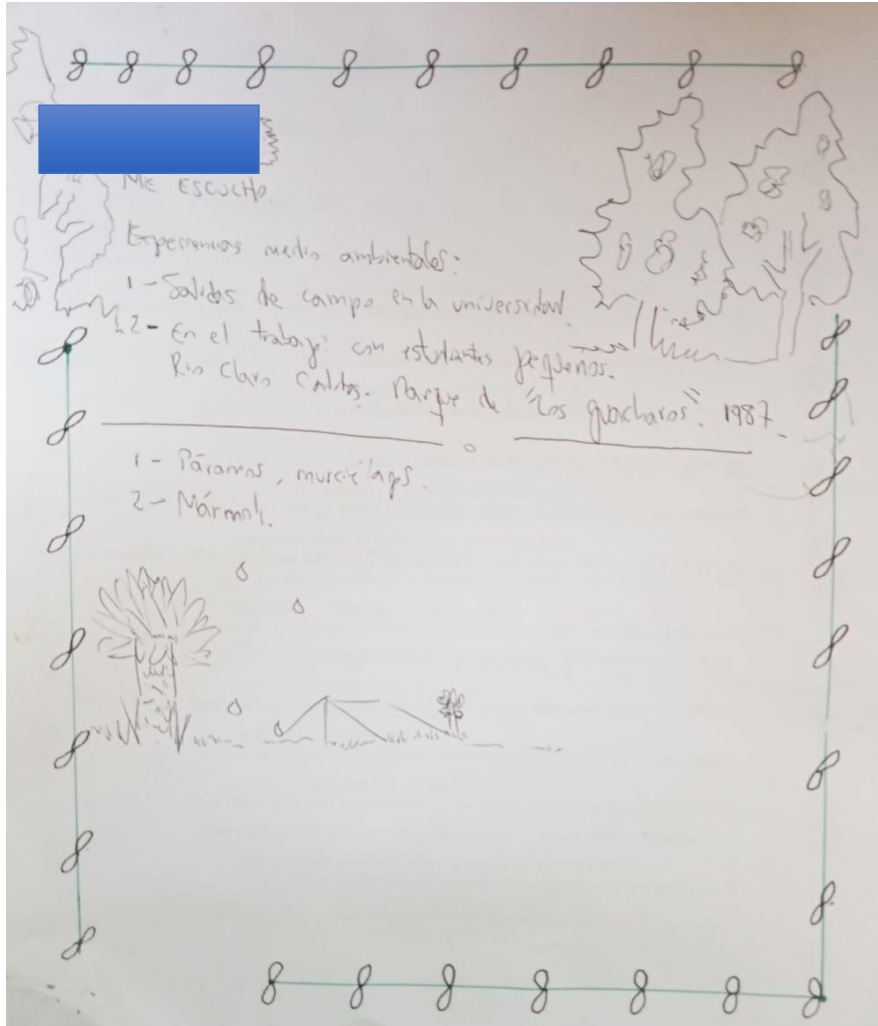 ME ESCUCHO.
Experiencias medio ambientales:
1 - Salidas de campo en la universidad.
2 - En el trabajo con estudiantes pequeños.
Rio Claro Caldas. Parque de "Los guacharos". 1987.
1 - Páramos, murciélagos.
2 - Mármol.